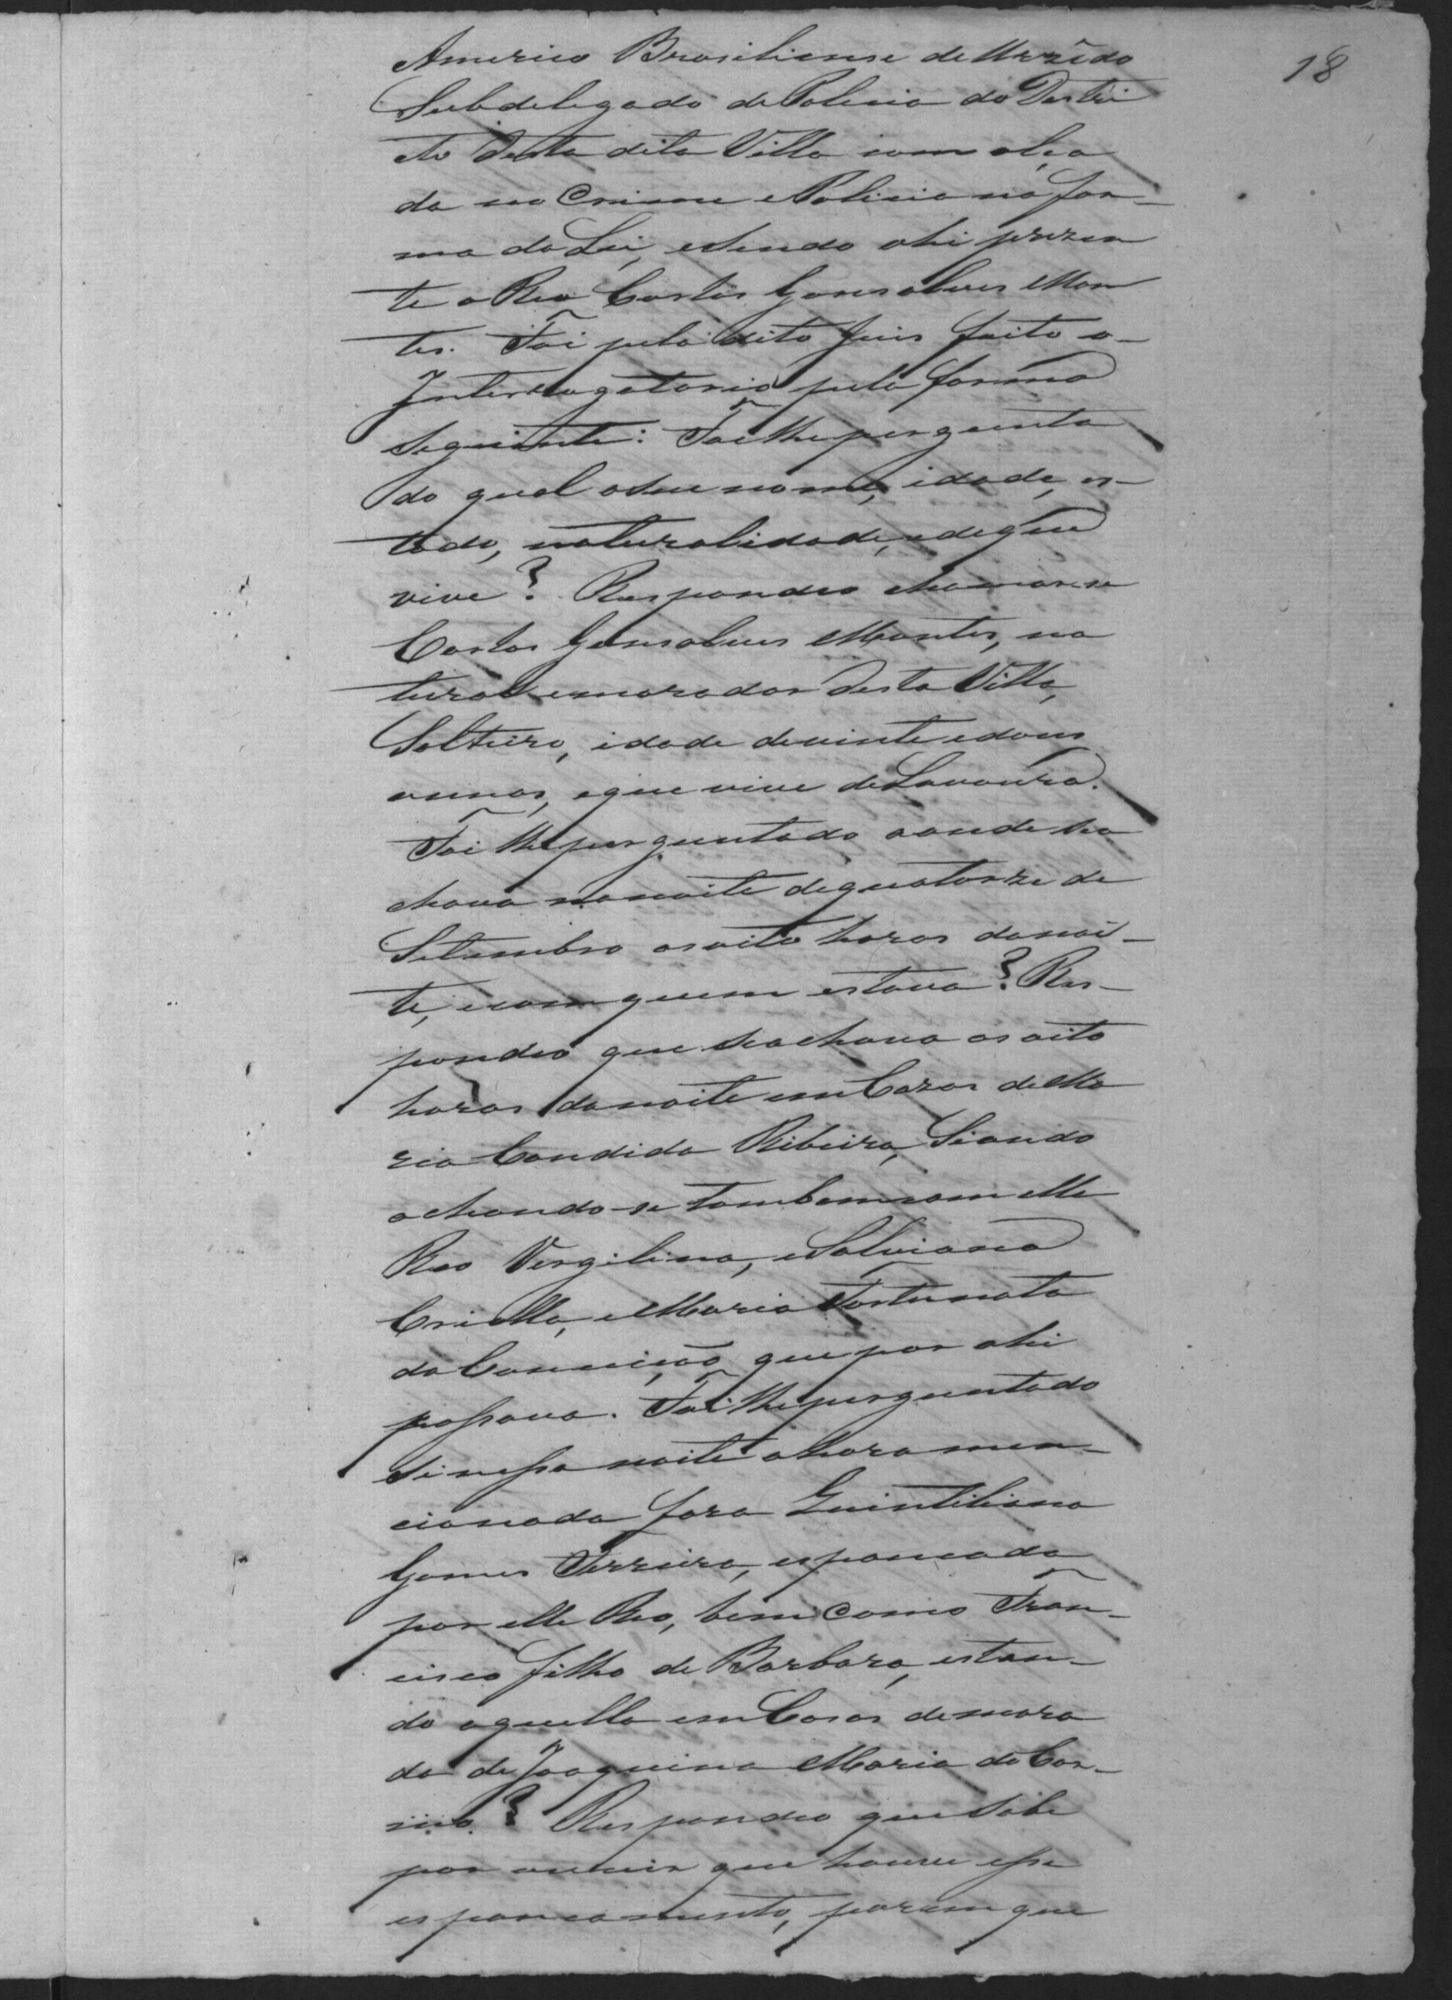 18
Americo Brasiliense de Azevêdo
Subdelegado de Policia do Destri
cto desta dita Villa com alça
da no Crime e Policia na for-
ma da Lei, e sendo ahi prezen
te o Reo Carlos Gonsalves Mon
tes. Foi pelo dito Juis feito o
Interrogatorio pela forma
seguinte: Foi lhe pergunta
do qual o seu nome, idade, es-
tado, naturalidade, e de que
vive? Respondeo chamar-se
Carlos Gonsalves Montes, na
tural e morador desta Villa,
Solteiro, idade de vinte e dous
annos, e que vive de Lavoura.
Foi lhe perguntado aonde sea
chava na noite de quatorze de
Setembro as oito horas da noi-
te, e com quem estava? Res-
pondeo que se achava as oito
horas da noite em Cazas de Ma
ria Candida Ribeira,
achando-se tambem com elle
Reo Vergilina, e Salviana
Criolla, e Maria Fortunata
da Conceição, que por ahi
passava. Foi lhe perguntado
si nessa noite a hora men-
cionada fora Quintiliana
Gomes Ferreira, espancada
por elle Reo, bem como Fran-
cisco filho de Barbara, estan-
do aquella em Casas de mora
da de Joaquina Maria do Car-
mo? Respondeo que sabe
por ouvir que houve esse
espancamento, porem que